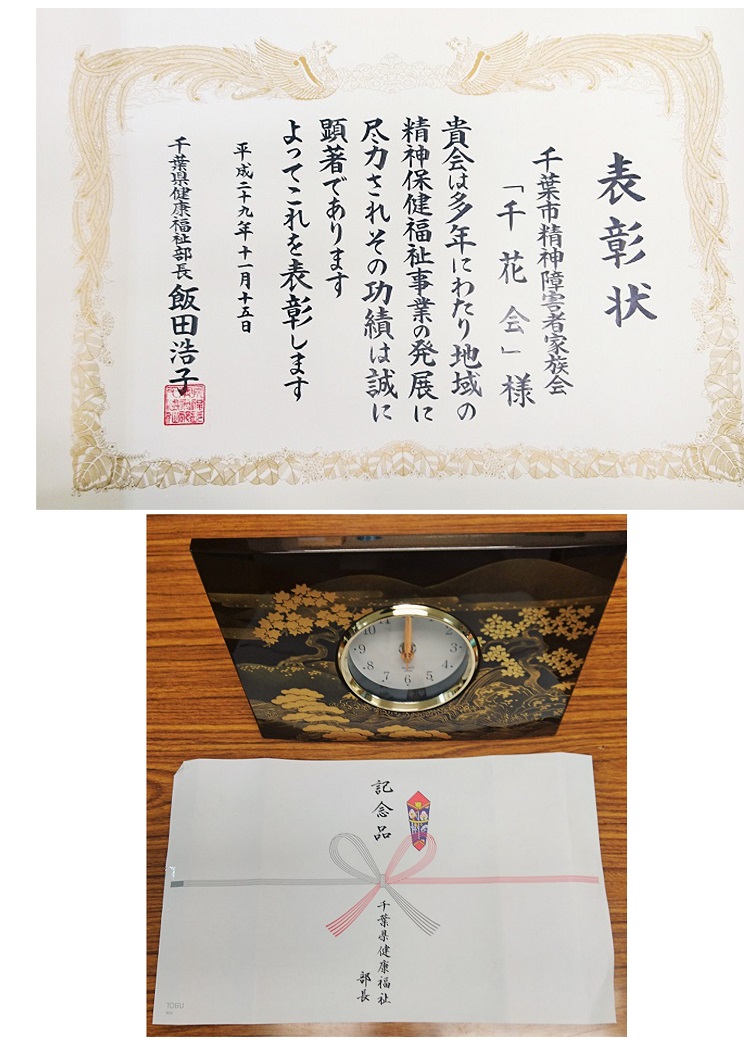 表彰状
千葉市精神障害者家族会
「千花会」様
貴会は多年にわたり地域の
精神保健福祉事業の発展に
尽力されその功績は誠に
顕著であります
よってこれを表彰します
平成二十九年十一月十五日
千葉県健康福祉部長 飯田浩子
11
10
9
8
7
6
5
4
3
2
記念品
千葉県健康福祉
部長
TOBU